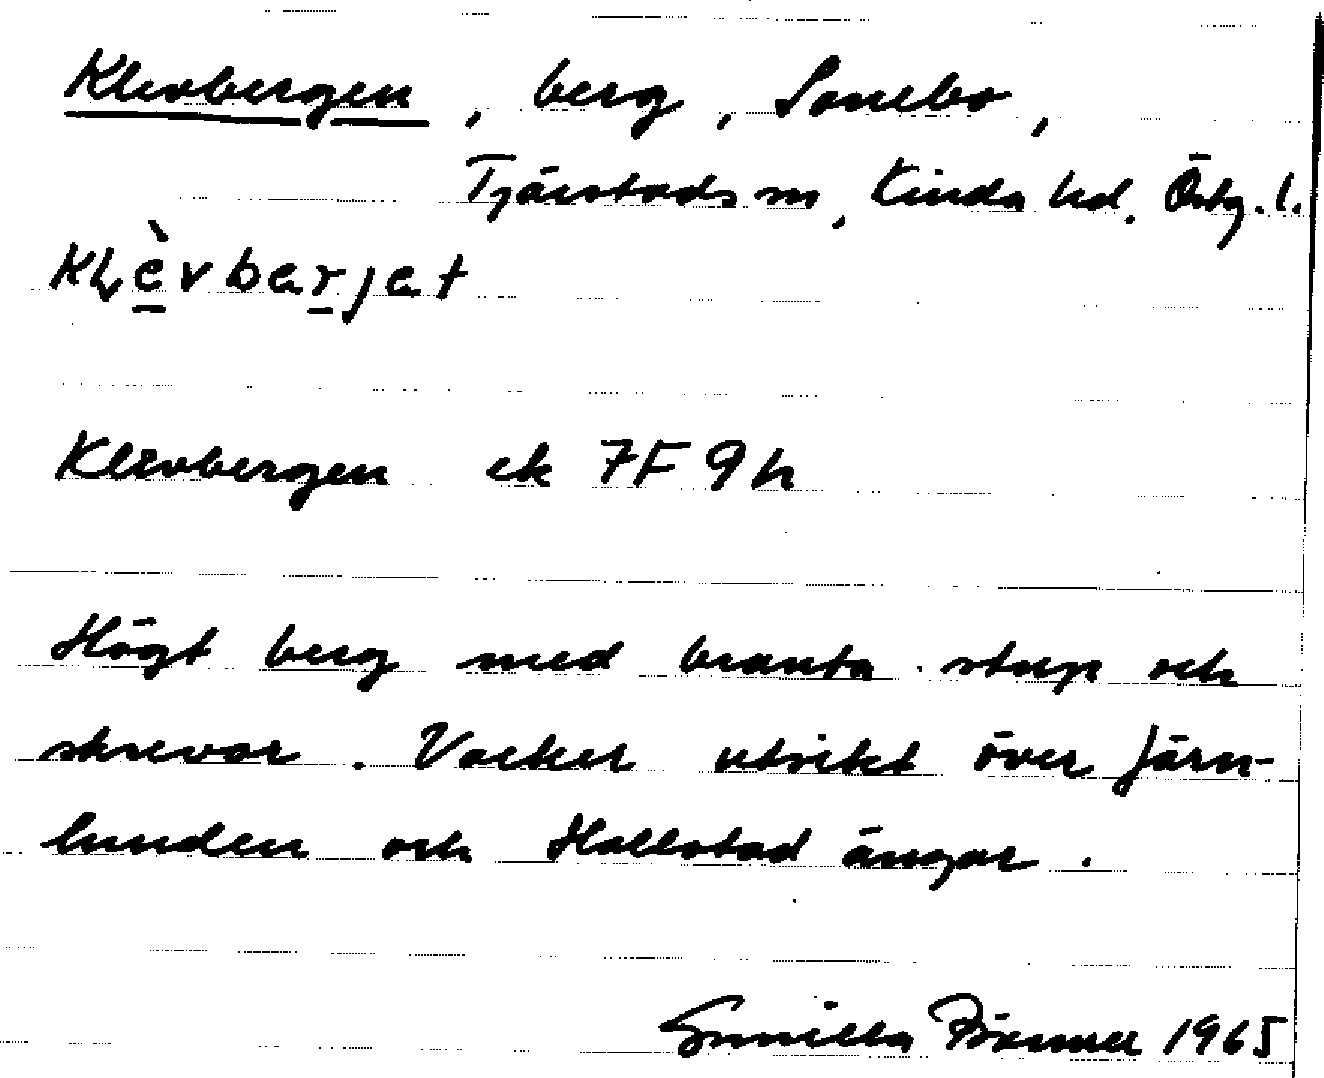 Klevbergen, berg, Sonebo,
Tjärstads sn, Kinda hd. Östg. l.
Klèvbarjat
Klevbergen ek 7F 9h
Högt berg med branta stup och
skrevor. Vacker utsikt över Järn-
lunden och Hallstad ängar.
Gunilla 1965